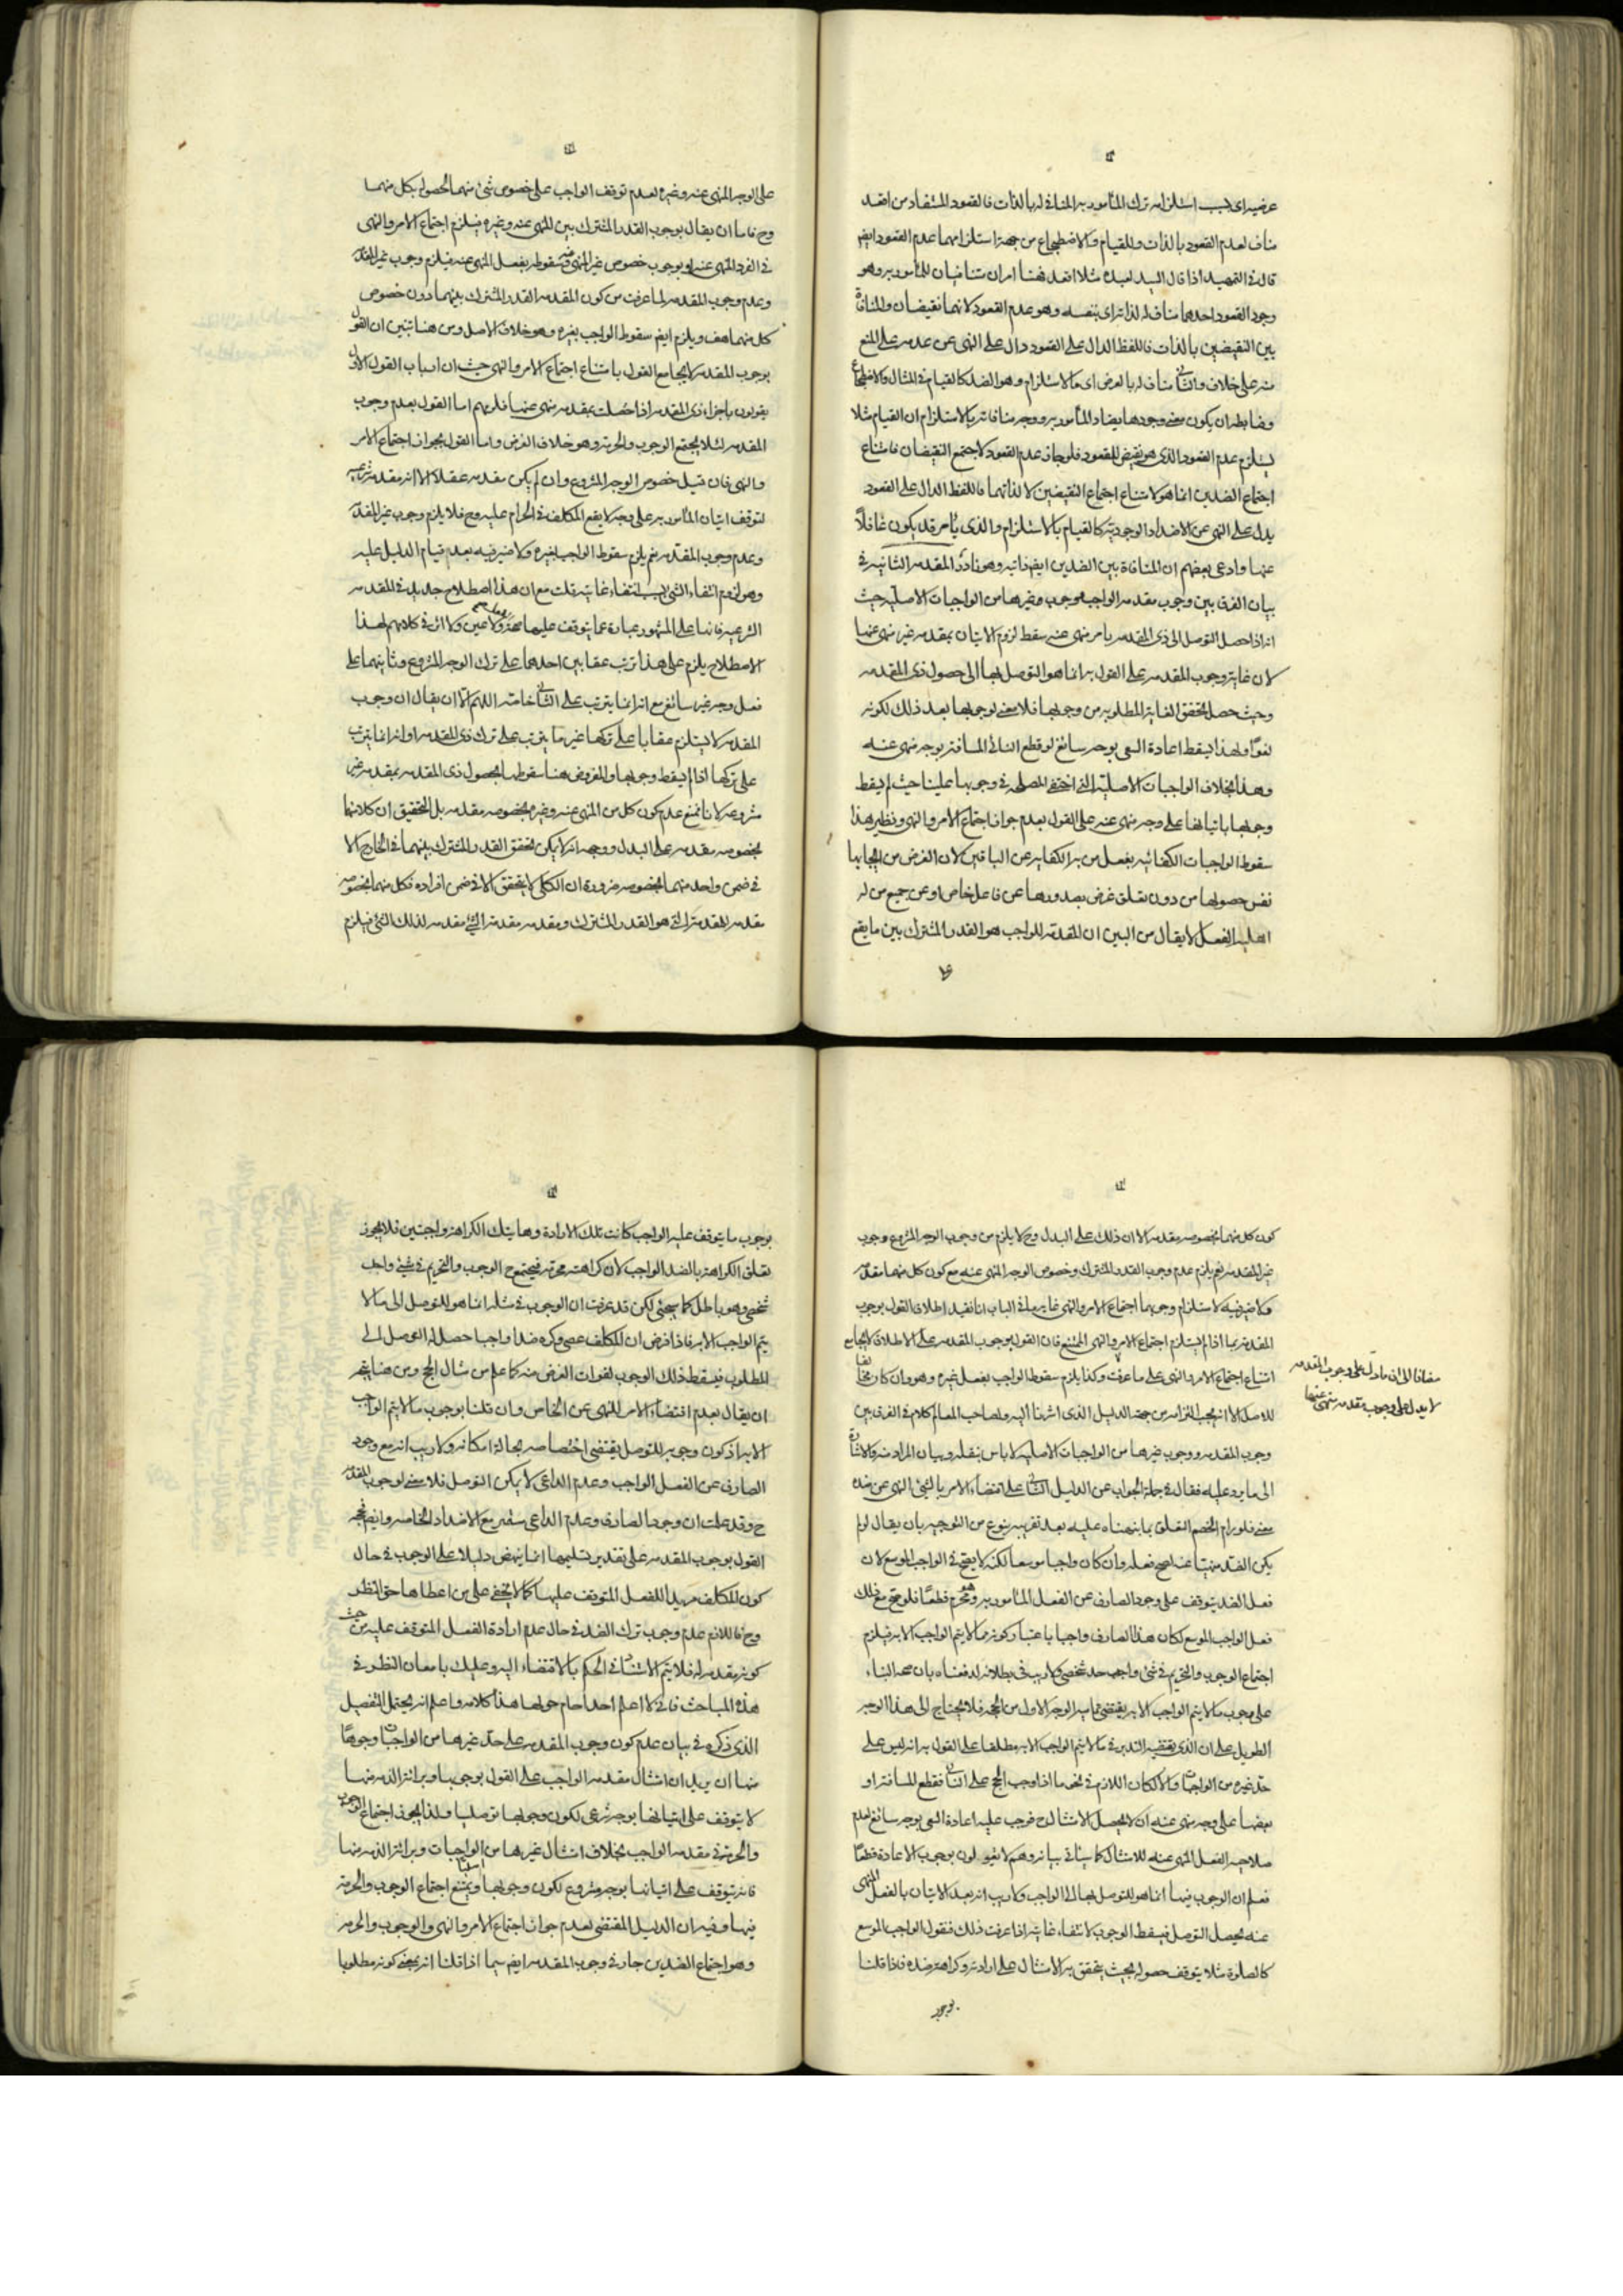 عرضية اى بسبب استلزامه ترك المأمور به المنافى له بالذات فالقعود المستفاد من اقعد
مناف لعدم القعود بالذات وللقيام والاضطجاع من جهة استلزامهما عدم القعود ايضا
قال فى التمهيد اذا قال السيد لعبده مثلا اقعد فهنا امران متنافيان للمأمور به وهو
وجود القعود احدهما مناف له لذاته اى بنفسه وهو عدم القعود لانهما نقيضان والمنافاة
بين النقيضين بالذات فاللفظ الدال على القعود دال على النهى عن عدمه على المنع
منه على خلاف والثانى مناف له بالعرض اى بالاستلزام وهو الضد كالقيام فى المثال والاضطجاع
وضابطه ان يكون معنى وجوديا يضاد المأمور به ووجه منافاته بالاستلزام ان القيام مثلا
يستلزم عدم القعود الذى هو نقيض للقعود فلو جاز عدم القعود لاجتمع النقيضان فامتناع
اجتماع الضدين انما هو لامتناع اجتماع النقيضين لا لذاتهما فاللفظ الدال على القعود
يدل على النهى عن الاضداد الوجودية كالقيام بالاستلزام والذى يأمر قد يكون غافلا
عنها وادعى بعضهم ان المنافاة بين الضدين ايضا ذاتية وهو نادر المقدمة الثانية فى
بيان الفرق بين وجوب مقدمة الواجب ووجوب غيرها من الواجبات الاصلية حيث
انه اذا حصل التوصل الى ذى المقدمة بامر منهى عنه سقط لزوم الاتيان بمقدمة غير منهى عنها
لان غاية وجوب المقدمة على القول به انما هو التوصل بها الى حصول ذى المقدمة
وحيث حصل تحقق الغاية المطلوبة من وجوبها فلا معنى لوجوبها بعد ذلك لكونه
لغوا ولهذا يسقط اعادة السعى بوجه سائغ لو قطع النائى المسافة بوجه منهى عنه
وهذا بخلاف الواجبات الاصلية التى اختفى المصلحة فى وجوبها علينا حيث لم يسقط
وجوبها باتيانها على وجه منهى عنه على القول بعدم جواز اجتماع الامر والنهى ونظير هذا
سقوط الواجبات الكفائية بفعل من به الكفاية عن الباقين لان الغرض من ايجابها
نفس حصولها من دون تعلق غرض بصدورها عن فاعل خاص او عن جميع من له
اهلية الفعل لا يقال من البين ان المقدمة للواجب هو القدر المشترك بين ما يقع
على
على الوجه المنهى عنه وغيره لعدم توقف الواجب على خصوص شئ منهما لحصوله بكل منهما
وح فاما ان يقال بوجوب القدر المشترك بين المنهى عنه وغيره فيلزم اجتماع الامر والنهى
فى الفرد المنهى عنه او بوجوب خصوص غير المنهى عنه وسقوطه بفعل المنهى عنه فيلزم وجوب غير المقدمة
وعدم وجوب المقدمة لما عرفت من كون المقدمة القدر المشترك بينهما دون خصوص
كل منهما هف ويلزم ايضا سقوط الواجب بغيره وهو خلاف الاصل ومن هنا تبين ان القول
بوجوب المقدمة لا يجامع القول بامتناع اجتماع الامر والنهى حيث ان ارباب القول الاول
يقولون باجزاء ذى المقدمة اذا حصلت بمقدمة منهى عنها فلزمهم اما القول بعدم وجوب
المقدمة لئلا يجتمع الوجوب والحرمة وهو خلاف الفرض واما القول بجواز اجتماع الامر
والنهى فان قيل خصوص الوجه المشروع وان لم يكن مقدمة عقلا الا انه مقدمة شرعية
لتوقف اتيان المأمور به على وجه لا يقع المكلف فى الحرام عليه وح فلا يلزم وجوب غير المقدمة
وعدم وجوب المقدمة نعم يلزم سقوط الواجب بغيره ولا ضير فيه بعد قيام الدليل عليه
وهو لزوم انتفاء الشئ بسبب انتفاء غايته قلت مع ان هذا اصطلاح جديد فى المقدمة
الشرعية فانها على المشهور عبارة عما يتوقف عليها ولا عين ولا اثر فى كلامهم لهذا
الاصطلاح يلزم على هذا ترتب عقابين احدهما على ترك الوجه المشروع وثانيهما على
فعل وجه غير سائغ مع انه انما يترتب على الثانى خاصة اللهم الا ان يقال ان وجوب
المقدمة لا يستلزم عقابا على تركها غير ما يترتب على ترك ذى المقدمة او انه انما يترتب
على تركها اذا لم يسقط وجوبها والمفروض هنا سقوطها بحصول ذى المقدمة بمقدمة غير
مشروعة لانا نمنع عدم كون كل من المنهى عنه وغيره بخصوصه مقدمة بل التحقيق ان كلا منهما
بخصوصه مقدمة على البدل ووجهه انه لا يمكن تحقق القدر المشترك بينهما فى الخارج الا
فى ضمن واحد منهما بخصوصه ضرورة ان الكلى لا يتحقق الا فى ضمن افراده فكل منهما بخصوصه
مقدمة للمقدمة التى هو القدر المشترك ومقدمة مقدمة الشئ مقدمة لذلك الشئ فيلزم
كون كل منهما بخصوصه مقدمة الا ان ذلك على البدل وح لا يلزم من وجوب الوجه المشروع وجوب
غير المقدمة نعم يلزم عدم وجوب القدر المشترك وخصوص الوجه المنهى عنه مع كون كل منهما مقدمة
ولا ضير فيه لاستلزام وجوبهما اجتماع الامر والنهى غاية ما فى الباب انا نقيد اطلاق القول بوجوب
المقدمة بما اذا لم يستلزم اجتماع الامر والنهى الممتنع فان القول بوجوب المقدمة على الاطلاق لا يجامع
امتناع اجتماع الامر والنهى على ما عرفت وكذا يلزم سقوط الواجب بفعل غيره وهو وان كان مخالفا
للاصل الا انه يجب التزامه من جهة الدليل الذى اشرنا اليه ولصاحب المعالم كلام فى الفرق بين
مضافا الى ان ما دل على وجوب المقدمة
لا يدل على وجوب مقدمة منهى عنها
وجوب المقدمة ووجوب غيرها من الواجبات الاصلية لا باس بنقله وبيان المراد منه والاشارة
الى ما يرد عليه فقال فى جملة الجواب عن الدليل الثانى على اقتضاء الامر بالشئ النهى عن ضده
يعنى فلو رام الخصم التعلق بما نبهناه عليه بعد تقريبه بنوع من التوجيه بان يقال لو لم
يكن الضد منهيا عنه لصح فعله وان كان واجبا موسعا لكنه لا يصح فى الواجب الموسع لان
فعل الضد يتوقف على وجود الصارف عن الفعل المأمور به وهو محرم قطعا فلو صح مع ذلك
فعل الواجب الموسع لكان هذا الصارف واجبا باعتبار كونه مما لا يتم الواجب الا به فيلزم
اجتماع الوجوب والتحريم فى شئ واحد شخصى ولا ريب فى بطلانه لدفعناه بان صحة البناء
على وجوب ما لا يتم الواجب الا به يقتضى تمامية الوجه الاول من الحجة فلا يحتاج الى هذا الوجه
الطويل على ان الذى يقتضيه التدبر فى ما لا يتم الواجب الا به مطلقا على القول به انه ليس على
حد غيره من الواجبات والا لكان اللازم فى نحو ما اذا وجب الحج على النائى فقطع المسافة او
بعضها على وجه منهى عنه ان لا يحصل الامتثال ح فوجب عليه اعادة السعى بوجه سائغ لعدم
صلاحية الفعل المنهى عنه للامتثال كما سيأتى بيانه وهم لا يقولون بوجوب الاعادة قطعا
فعلم ان الوجوب فيها انما هو للتوصل بها الى الواجب ولا ريب انه بعد الاتيان بالفعل المنهى
عنه يحصل التوصل فيسقط الوجوب لانتفاء غايته اذا عرفت ذلك فنقول الواجب الموسع
كالصلوة مثلا يتوقف حصوله بحيث يتحقق به الامتثال على ارادته وكراهة ضده فاذا قلنا
بوجوب
بوجوب ما يتوقف عليه الواجب كانت تلك الارادة وهاتيك الكراهة واجبتين فلا يجوز
تعلق الكراهة بالضد الواجب لان كراهته محرمة فيجتمع ح الوجوب والتحريم فى شئ واحد
شخصى وهو باطل كما سيجئ لكن قد عرفت ان الوجوب فى مثله انما هو للتوصل الى ما لا
يتم الواجب الا به فاذا فرض ان المكلف عصى وكره ضدا واجبا حصل له التوصل الى
المطلوب فيسقط ذلك الوجوب لفوات الغرض منه كما علم من مثال الحج ومن هنا يتجه
ان يقال بعدم اقتضاء الامر للنهى عن الضد الخاص وان قلنا بوجوب ما لا يتم الواجب
الا به اذ كون وجوبه للتوصل يقتضى اختصاصه بحالة امكانه ولا ريب انه مع وجود
الصارف عن الفعل الواجب وعدم الداعى لا يمكن التوصل فلا معنى لوجوب المقدمة
ح وقد علمت ان وجود الصارف وعدم الداعى مستمر مع الاضداد الخاصة وايضا فحجة
القول بوجوب المقدمة على تقدير تسليمها انما ينهض دليلا على الوجوب فى حال
كون المكلف مريدا للفعل المتوقف عليها كما لا يخفى على من اعطاها حق النظر
وح فاللازم عدم وجوب ترك الضد فى حال عدم ارادة الفعل المتوقف عليه من حيث
كونه مقدمة له فلا يتم الاستناد فى الحكم بالاقتضاء اليه وعليك بامعان النظر فى
هذه المباحث فانى لا اعلم احدا حام حولها هذا كلامه واعلم انه يحتمل التفصيل
الذى ذكره فى بيان عدم كون وجوب المقدمة على حد غيرها من الواجبات وجوها
منها ان يريد ان امتثال مقدمة الواجب على القول بوجوبها وبرائة الذمة منها
لا يتوقف على اتيانها بوجه شرعى لكون وجوبها توصليا ولذا يجوز اجتماع الوجوب
والحرمة فى مقدمة الواجب بخلاف امتثال غيرها من الواجبات وبرائة الذمة منها
فانه يتوقف على اتيانها بوجه مشروع لكون وجوبها ويمتنع اجتماع الوجوب والحرمة
فيها وفيه ان الدليل المقتضى لعدم جواز اجتماع الامر والنهى والوجوب والحرمة
وهو اجتماع الضدين جار فى وجوب المقدمة ايضا سيما اذا قلنا انه بمعنى كونه مطلوبا